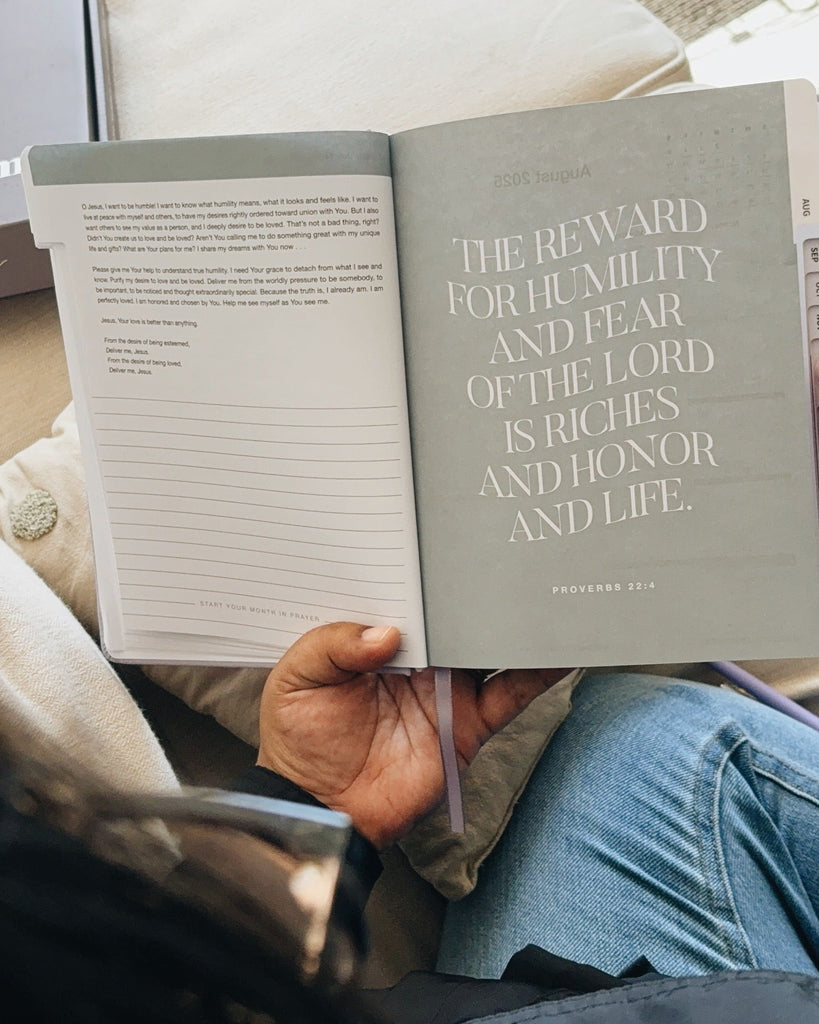 O Jesus, I want to be humble! I want to know what humility means, what it looks and feels like. I want to
live at peace with myself and others, to have my desires rightly ordered toward union with You. But I also
want others to see my value as a person, and I deeply desire to be loved. That's not a bad thing, right?
Didn't You create us to love and be loved? Aren't You calling me to do something great with my unique
life and gifts? What are Your plans for me? I share my dreams with You now . . .
Please give me Your help to understand true humility. I need Your grace to detach from what I see and
know. Purify my desire to love and be loved. Deliver me from the worldly pressure to be somebody, to
be important, to be noticed and thought extraordinarily special. Because the truth is, I already am. I am
perfectly loved. I am honored and chosen by You. Help me see myself as You see me.
Jesus, Your love is better than anything.
From the desire of being esteemed,
Deliver me, Jesus.
From the desire of being loved,
Deliver me, Jesus.
START YOUR MONTH IN PRAYER
August 2026
THE REWARD
FOR HUMILITY
AND FEAR
OF THE LORD
IS RICHES
AND HONOR
AND LIFE.
PROVERBS 22:4
AUG
SEP